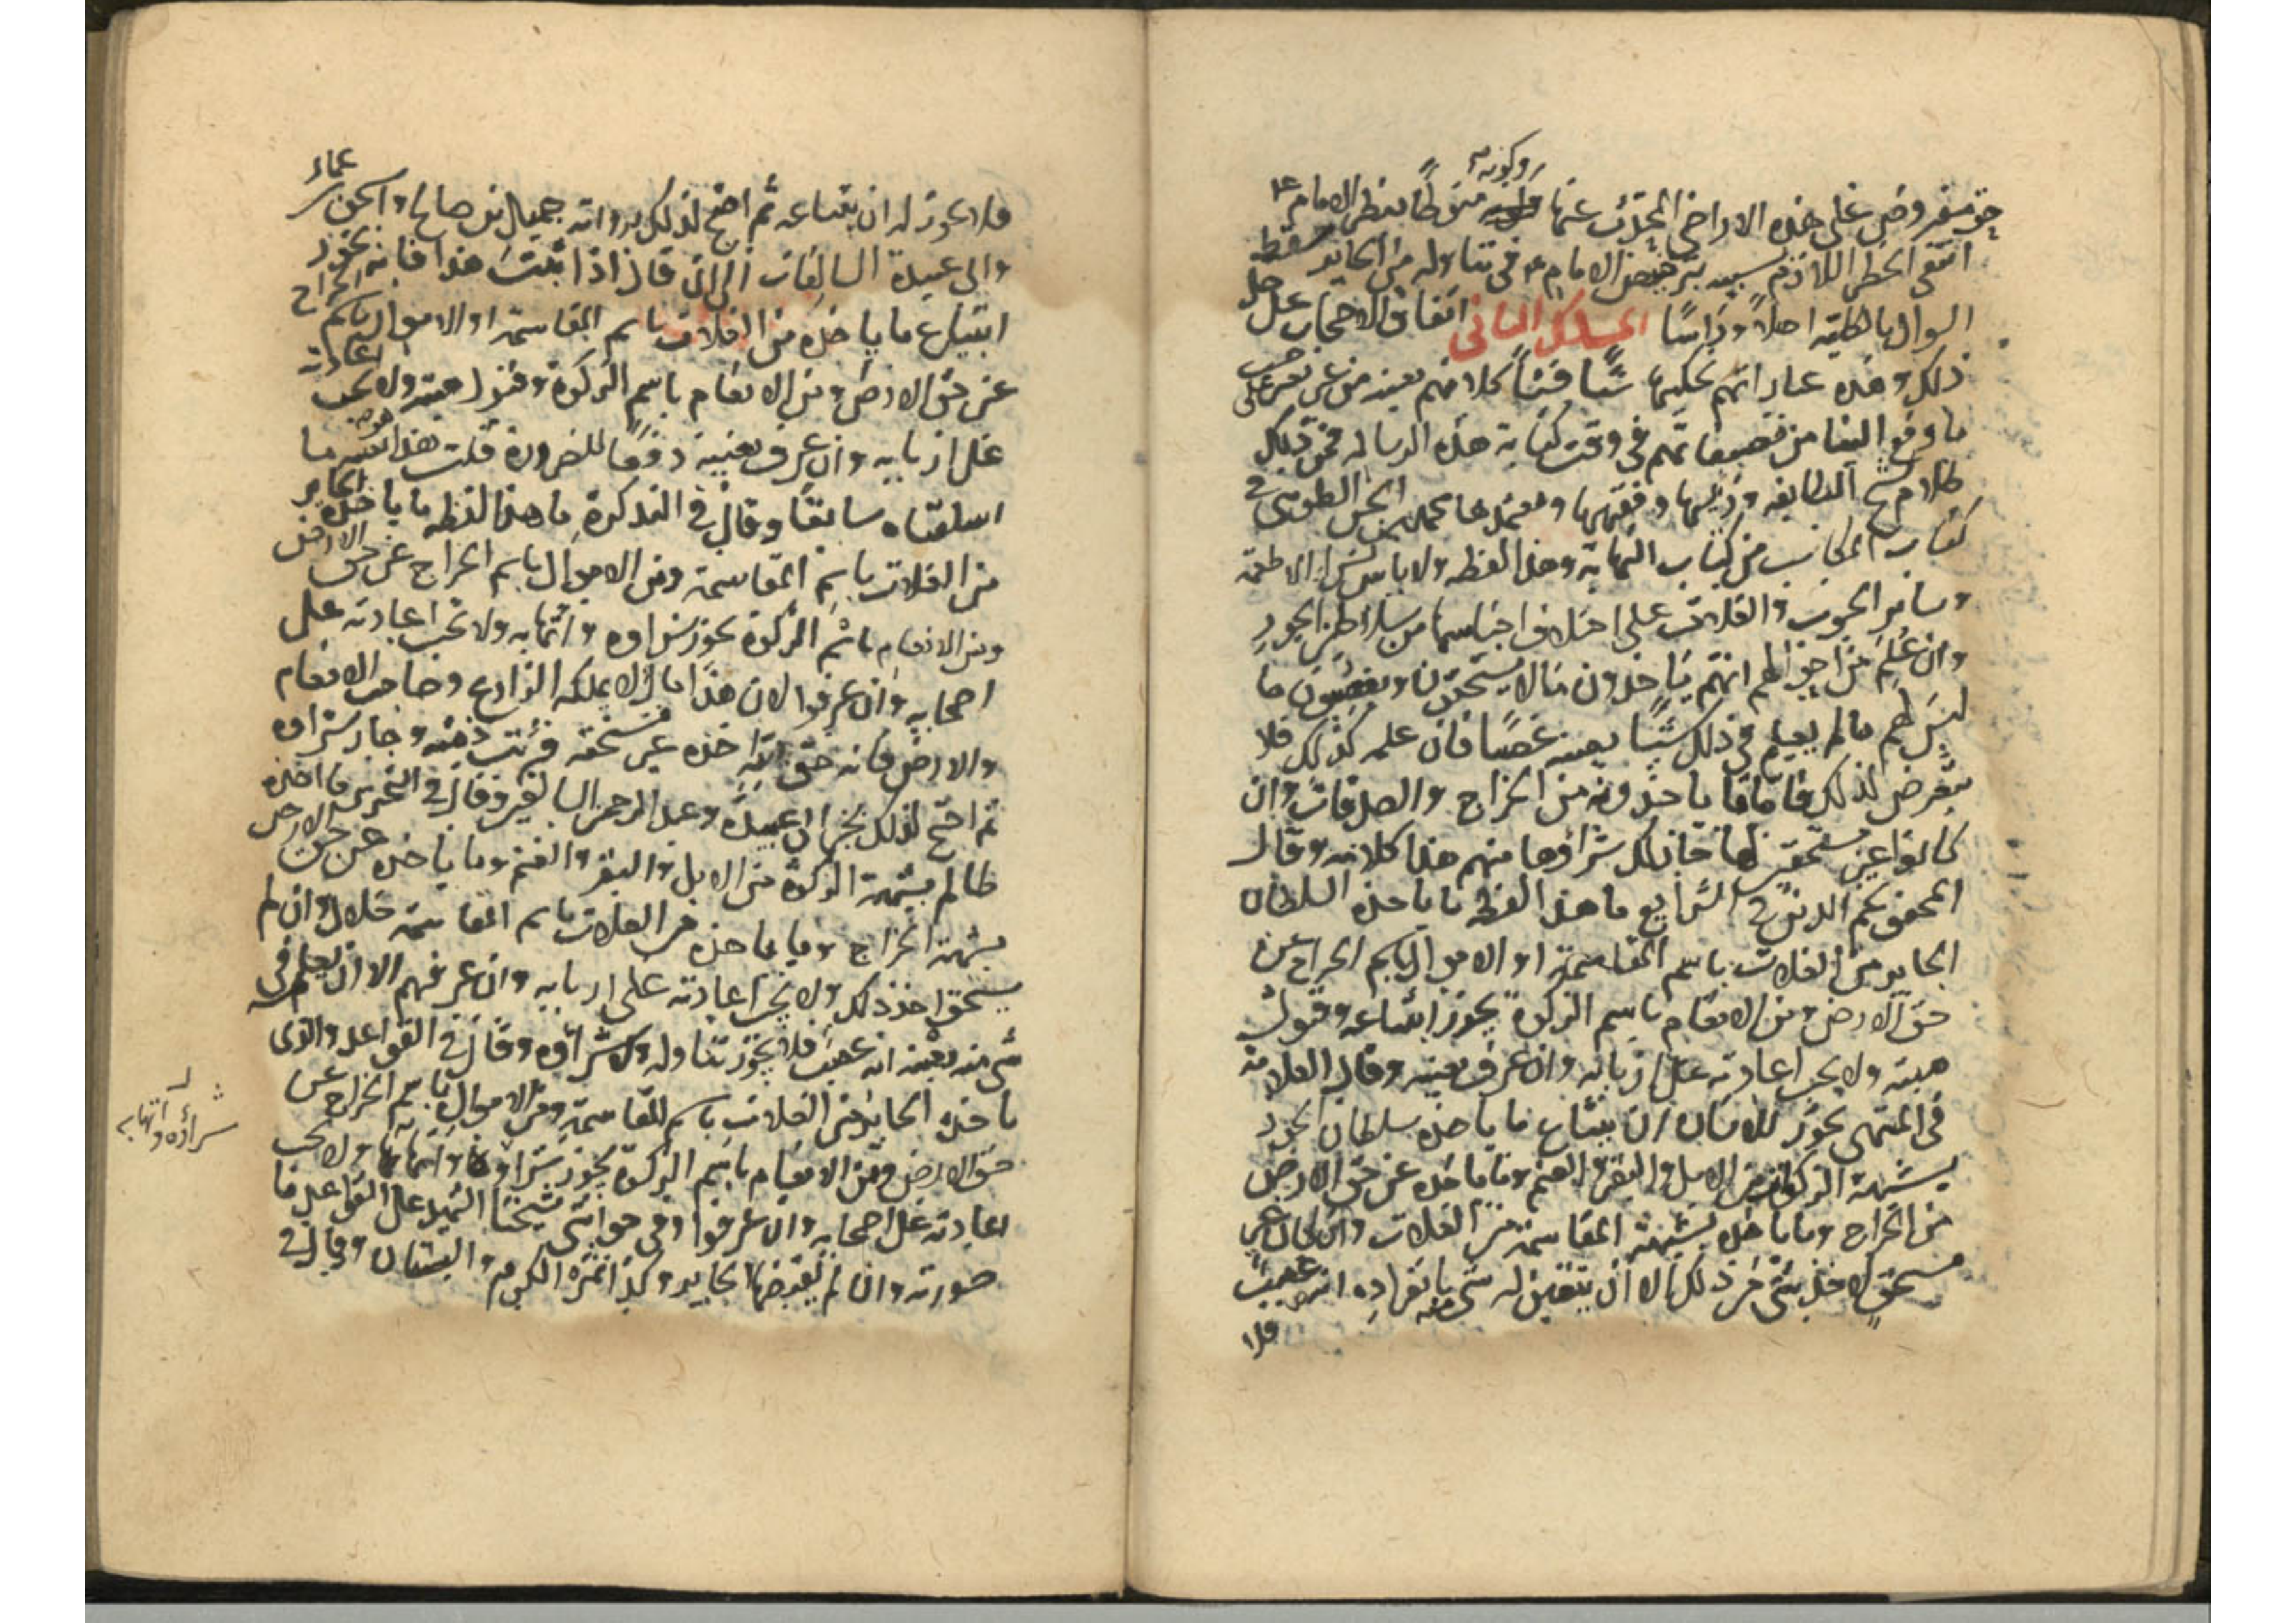 حق مفروض على هذه الاراضي المحدث عنها وكونه منوطا بنظر الامام ع
انتفى الحظر اللازم بسببه ترخيص الامام ع في تناوله من الجاير فسقط
السوال بالكلية اصلا وراسا المسلك الثاني اتفاق الاصحاب على حل
ذلك وهذه عباراتهم نحكيها شيئا فشيئا كلامهم بعينه من غير تصرف حسب
ما وقع الينا من تصنيفاتهم في وقت كتابة هذه الرسالة فمن ذلك
كلام شيخ الطايفة ورئيسها وفقيهها ومعتمدها محمد بن الحسن الطوسي في
كتاب المكاسب من كتاب النهاية وهذا لفظه ولا باس بشراء الاطعمة
وساير الحبوب والغلات على اختلاف اجناسها من سلاطين الجور
وان علم من احوالهم انهم ياخذون ما لا يستحقون ويغصبون ما
ليس لهم ما لم يعلم في ذلك شيئا بعينه غصبا فان علمه كذلك فلا
يتعرض لذلك فاما ما ياخذونه من الخراج والصدقات وان
كانوا غير مستحقين لها جاز لك شراؤها منهم هذا كلامه وقال
المحقق نجم الدين في الشرايع ما هذا لفظه ما ياخذه السلطان
الجاير من الغلات باسم المقاسمة او الاموال باسم الخراج عن
حق الارض ومن الانعام باسم الزكوة يجوز ابتياعه وقبول
هبته ولا يجب اعادته على اربابه وان عرف بعينه وقال العلامة
في المنتهى يجوز للانسان ان يبتاع ما ياخذه سلطان الجور
بشبهة الزكوة من الابل والبقر والغنم وما ياخذه عن حق الارض
من الخراج وما ياخذه بشبهة المقاسمة من الغلات وان كان غير
مستحق لاخذ شي من ذلك الا ان يتعين له شي منه بانفراده انه غصب
فلا
فلا يجوز له ان يبتاعه ثم احتج لذلك برواية جميل بن صالح واسحق بن عمار
وابي عبيدة السالفات الى ان قال اذا ثبت هذا فانه يجوز
ابتياع ما ياخذه من الغلات باسم المقاسمة او الاموال باسم الخراج
عن حق الارض ومن الانعام باسم الزكوة وقبول هبته ولا يجب اعادته
على اربابه وان عرف بعينه دفعا للضرورة قلت هذا هو بعينه ما
اسلفناه سابقا وقال في التذكرة ما هذا لفظه ما ياخذه الجاير
من الغلات باسم المقاسمة ومن الاموال باسم الخراج عن حق الارض
ومن الانعام باسم الزكوة يجوز شراوه واتهابه ولا تجب اعادته على
اصحابه وان عرفوا لان هذا مال لا يملكه الزارع وصاحب الانعام
والارض فانه حق لله اخذه غير مستحقه فبرئت ذمته وجاز شراوه
ثم احتج لذلك بخبر ابي عبيدة وعبد الرحمن السالفين وقال في التحرير ما اخذه
ظالم بشبهة الزكوة من الابل والبقر والغنم وما ياخذه عن حق الارض
بشبهة الخراج وما ياخذه من الغلات باسم المقاسمة حلال وان لم
يستحق اخذ ذلك ولا يجب اعادته على اربابه وان عرفهم الا ان يعلم في
شي منه بعينه انه غصب فلا يجوز تناوله ولا شراؤه وقال في القواعد والذي
ياخذه الجاير من الغلات باسم المقاسمة ومن الاموال باسم الخراج عن
حق الارض ومن الانعام باسم الزكوة يجوز شراؤها واتهابها ولا يجب
اعادته على اصحابه وان عرفوا وفي حواشي شيخنا الشهيد على القواعد ما
صورته وان لم يقبضها الجاير وكذا ثمرة الكرم والبستان وقال في
شراؤه واتهابه